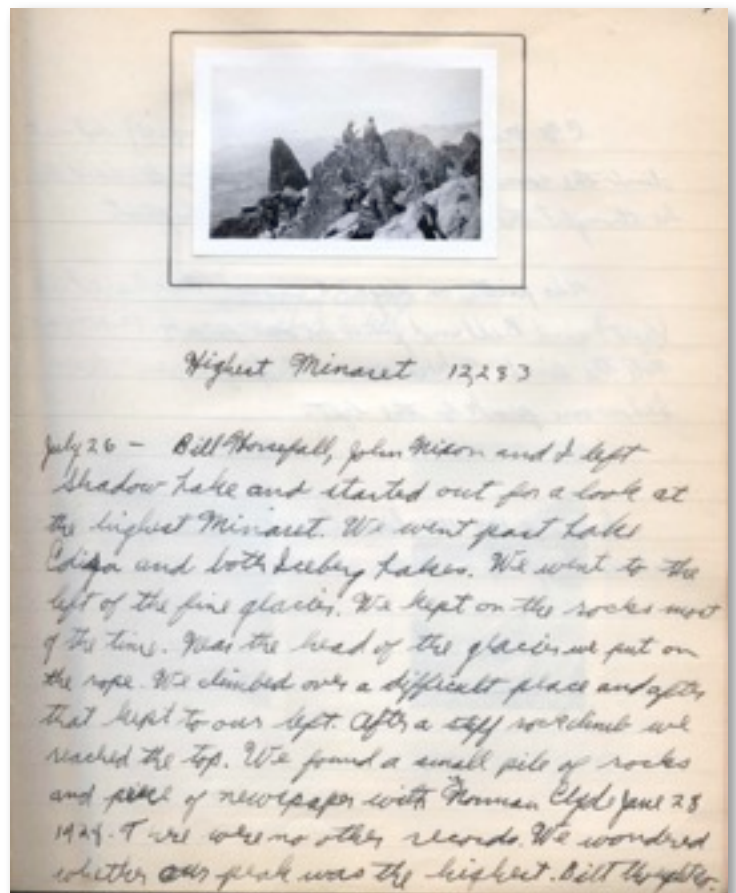 Highest Minaret 12,283
July 26 - Bill Horsfall, John Nixon and I left
Shadow Lake and started out for a look at
the highest Minaret. We went past Lake
Ediza and both Iceberg Lakes. We went to the
left of the fine glacier. We kept on the rocks most
of the time. Near the head of the glacier we put on
the rope. We climbed over a difficult place and after
that kept to our left. After a stiff rock climb we
reached the top. We found a small pile of rocks
and piece of newspaper with Norman Clyde June 28
were no other records. We wondered
whether our peak was the highest. Bill thought